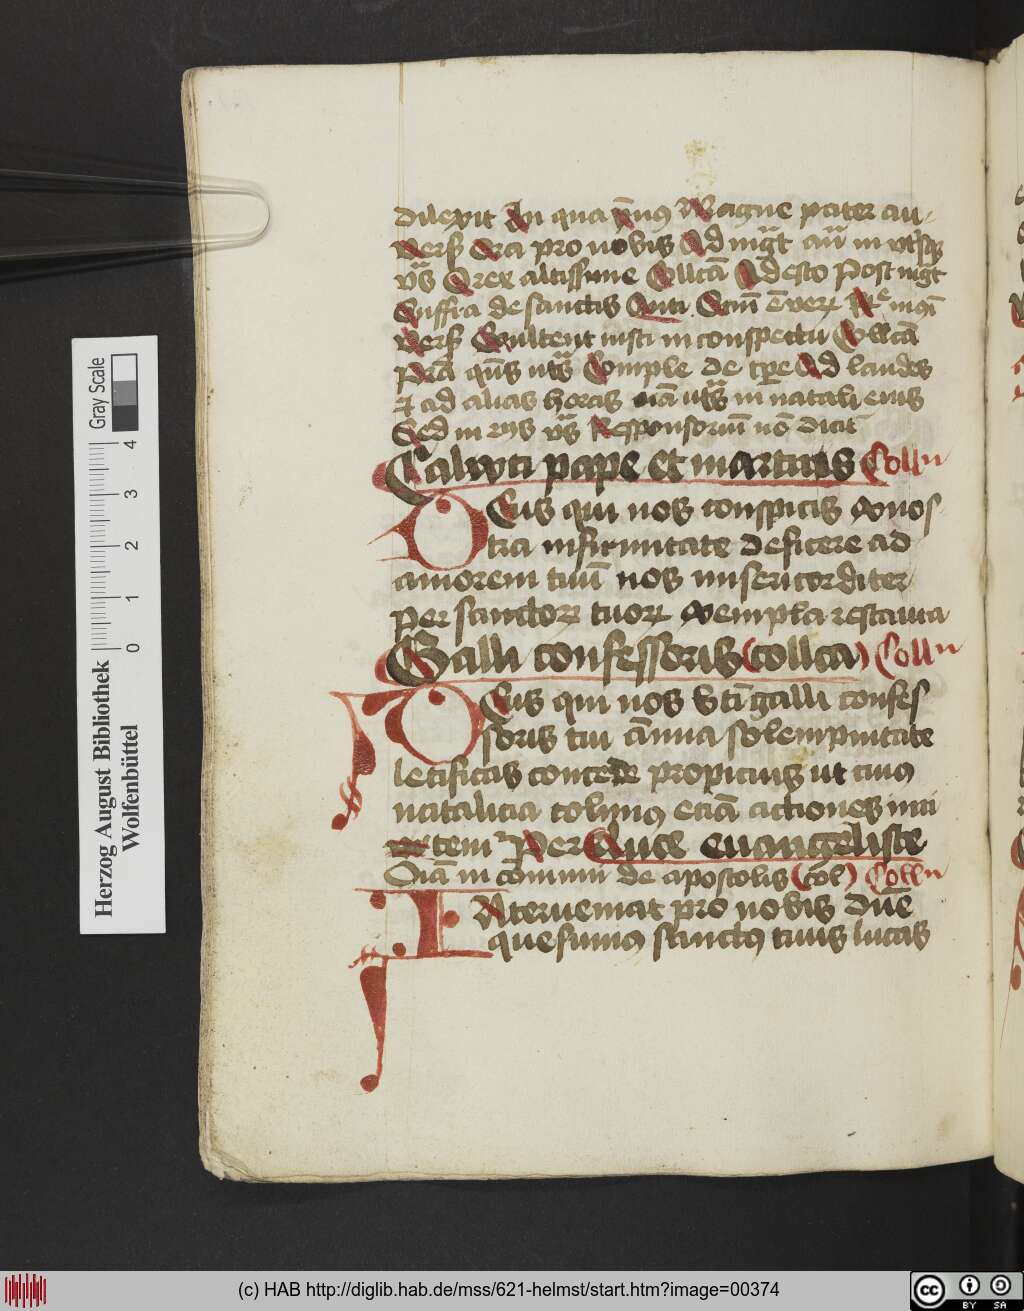 dilexit In qua p̄mꝯ Magne pater au-
vers Ora pro nobis Ad mḡt an̄ in utrisqꝫ
vs̄ O rex altissime Collcā Adesto Post mḡt
Suffra de sanctis
vers Exultent iusti in conspectu Collcā
Complē de tp̄e Ad laudes
⁊ ad alias horas oīa in natali eius
Sed in Responsoriū nō dicit
Calixti pape et martiris Coll
Deus qui nos conspicis ex nos
tra infirmitate deficere ad
amorem tuū nos misericorditer
per sanctorꝝ tuorꝝ exempla restaura
Galli confessoris (collca) Coll
Deus qui nos sc̄ti galli confes
soris tui ānua solempnitate
letificas concede propicius ut cuiꝯ
natalicia colimꝯ eciā actiones imi
temur Per Luce euangeliste
Oīa in commūi de apostolis (col) Coll
Interueniat pro nobis dn̄e
quesumꝯ sanctꝯ tuus lucas
Gray Scale
4
3
2
1
0
Herzog August Bibliothek
Wolfenbüttel
(c) HAB http://diglib.hab.de/mss/621-helmst/start.htm?image=00374
cc
BY SA